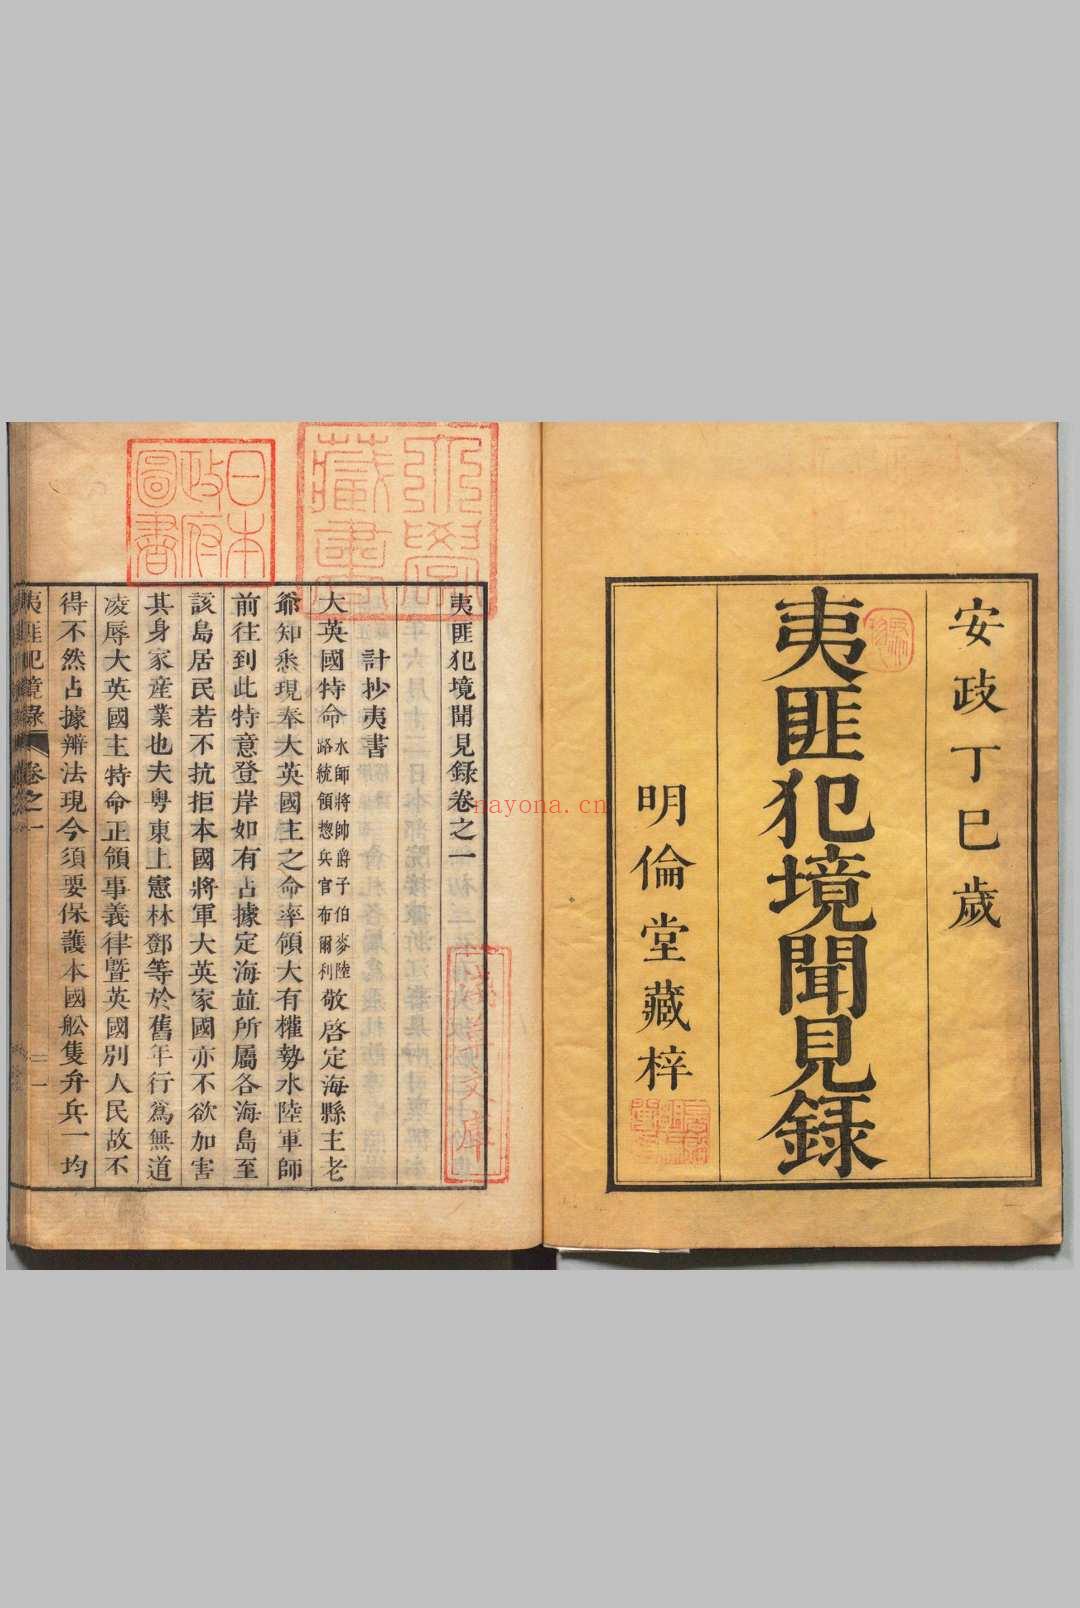 安政丁巳歲
夷匪犯境聞見録
明倫堂藏梓
日本
政府
圖書
大學
藏書
夷匪犯境聞見錄卷之一
計抄夷書
大英國特命水師將帥爵子伯麥陸路統領惣兵官布爾利敬啓定海縣主老
爺知悉現奉大英國主之命率領大有權勢水陸軍師
前往到此特意登岸如有占據定海並所屬各海島至
該島居民若不抗拒本國將軍大英家國亦不欲加害
其身家産業也夫粵東上憲林鄧等於舊年行爲無道
凌辱大英國主特命正領事義律曁英國別人民故不
得不然占據辦法現今須要保護本國舩隻弁兵一均
夷匪犯境錄 卷之一
一
nayona.cn